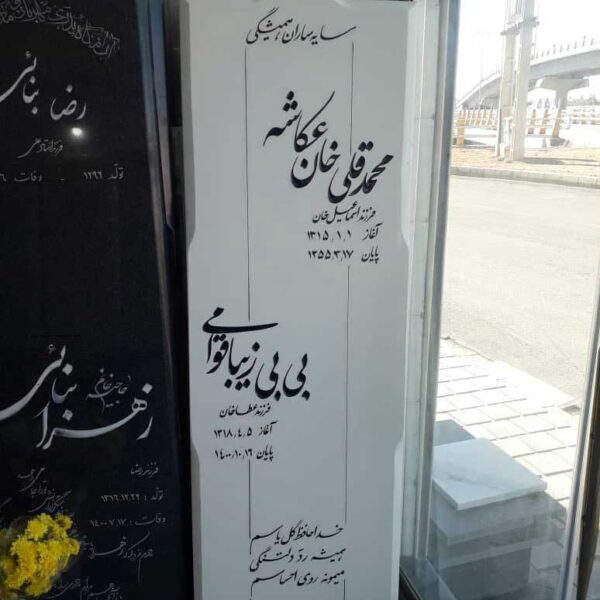 سایه ساران همیشگی
محمدقلی خان عکاشه
فرزند اسماعیل خان
آغاز ۱۳۱۵٫۱٫۱
پایان ۱۳۵۵٫۳٫۱۷
بی بی زیبا قوامی
فرزند عطاخان
آغاز ۱۳۱۸٫۴٫۵
پایان ۱۴۰۰٫۱۰٫۱۶
خداحافظ گل یاسم
همیشه ردّ دلتنگی
میمونه روی احساسم
رضا بنائی
فرزند استاد علی
تولد ۱۲۹۲ - وفات
زهرا بنائی
حاجیه خانم
فرزند رضا
تولد : ۱۳۱۶٫۱۲٫۲۲
وفات : ۱۴۰۰٫۷٫۱۷